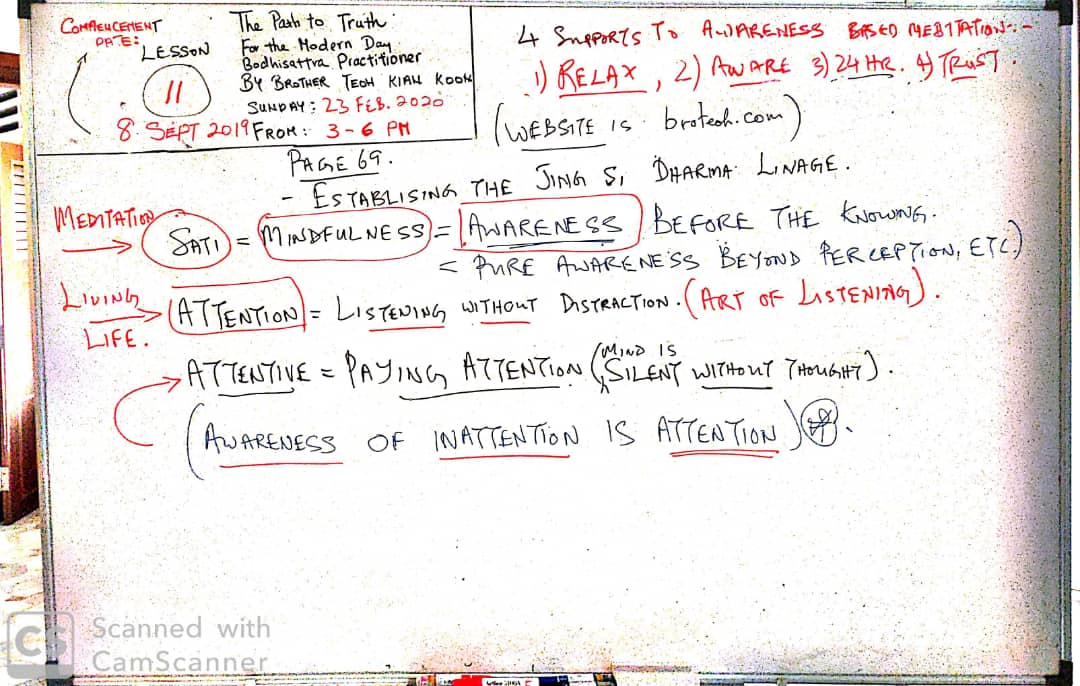 COMMENCEMENT
DATE:
8. SEPT 2019
LESSON
11
The Path to Truth
For the Modern Day
Bodhisattva Practitioner
BY BROTHER TEOH KIAN KOON
SUNDAY: 23 FEB. 2020
FROM: 3-6 PM
4 SUPPORTS TO AWARENESS BASED MEDITATION:-
1) RELAX, 2) AWARE 3) 24 HR. 4) TRUST.
(WEBSITE IS broteoh.com)
PAGE 69.
- ESTABLISING THE JING SI DHARMA LINAGE.
MEDITATION
SATI = MINDFULNESS = AWARENESS BEFORE THE KNOWING.
= PURE AWARENESS BEYOND PERCEPTION, ETC)
LIVING
LIFE.
ATTENTION = LISTENING WITHOUT DISTRACTION. (ART OF LISTENING).
ATTENTIVE = PAYING ATTENTION (MIND IS SILENT WITHOUT THOUGHT).
(AWARENESS OF INATTENTION IS ATTENTION).
CS Scanned with
CamScanner